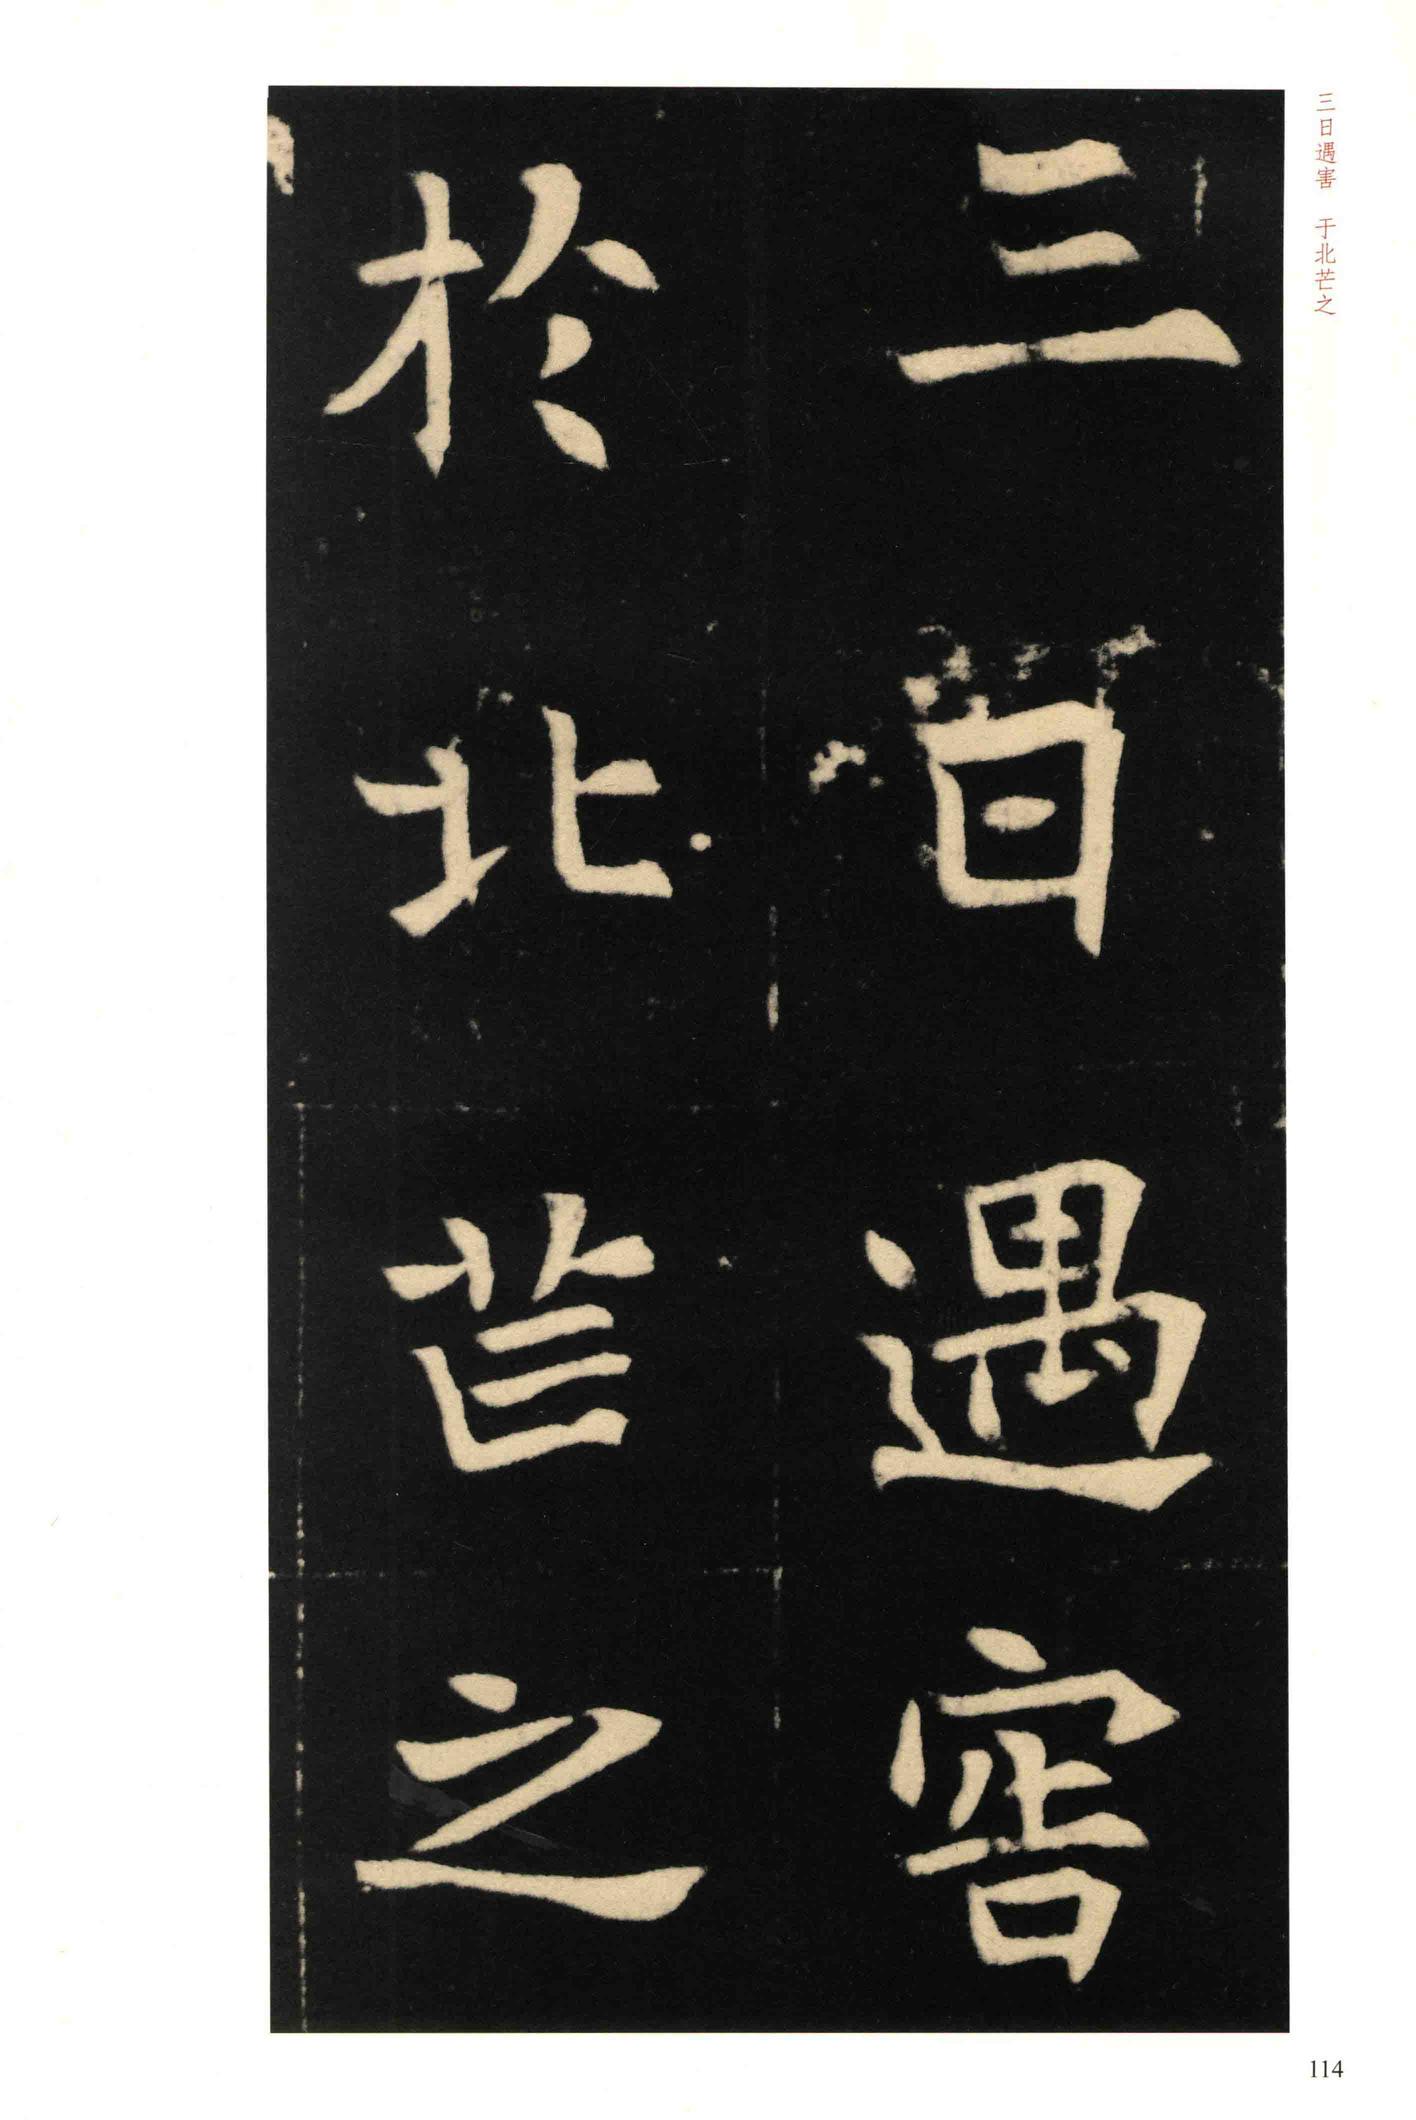 三日遇害　于北芒之
三日遇害
於北芒之
114